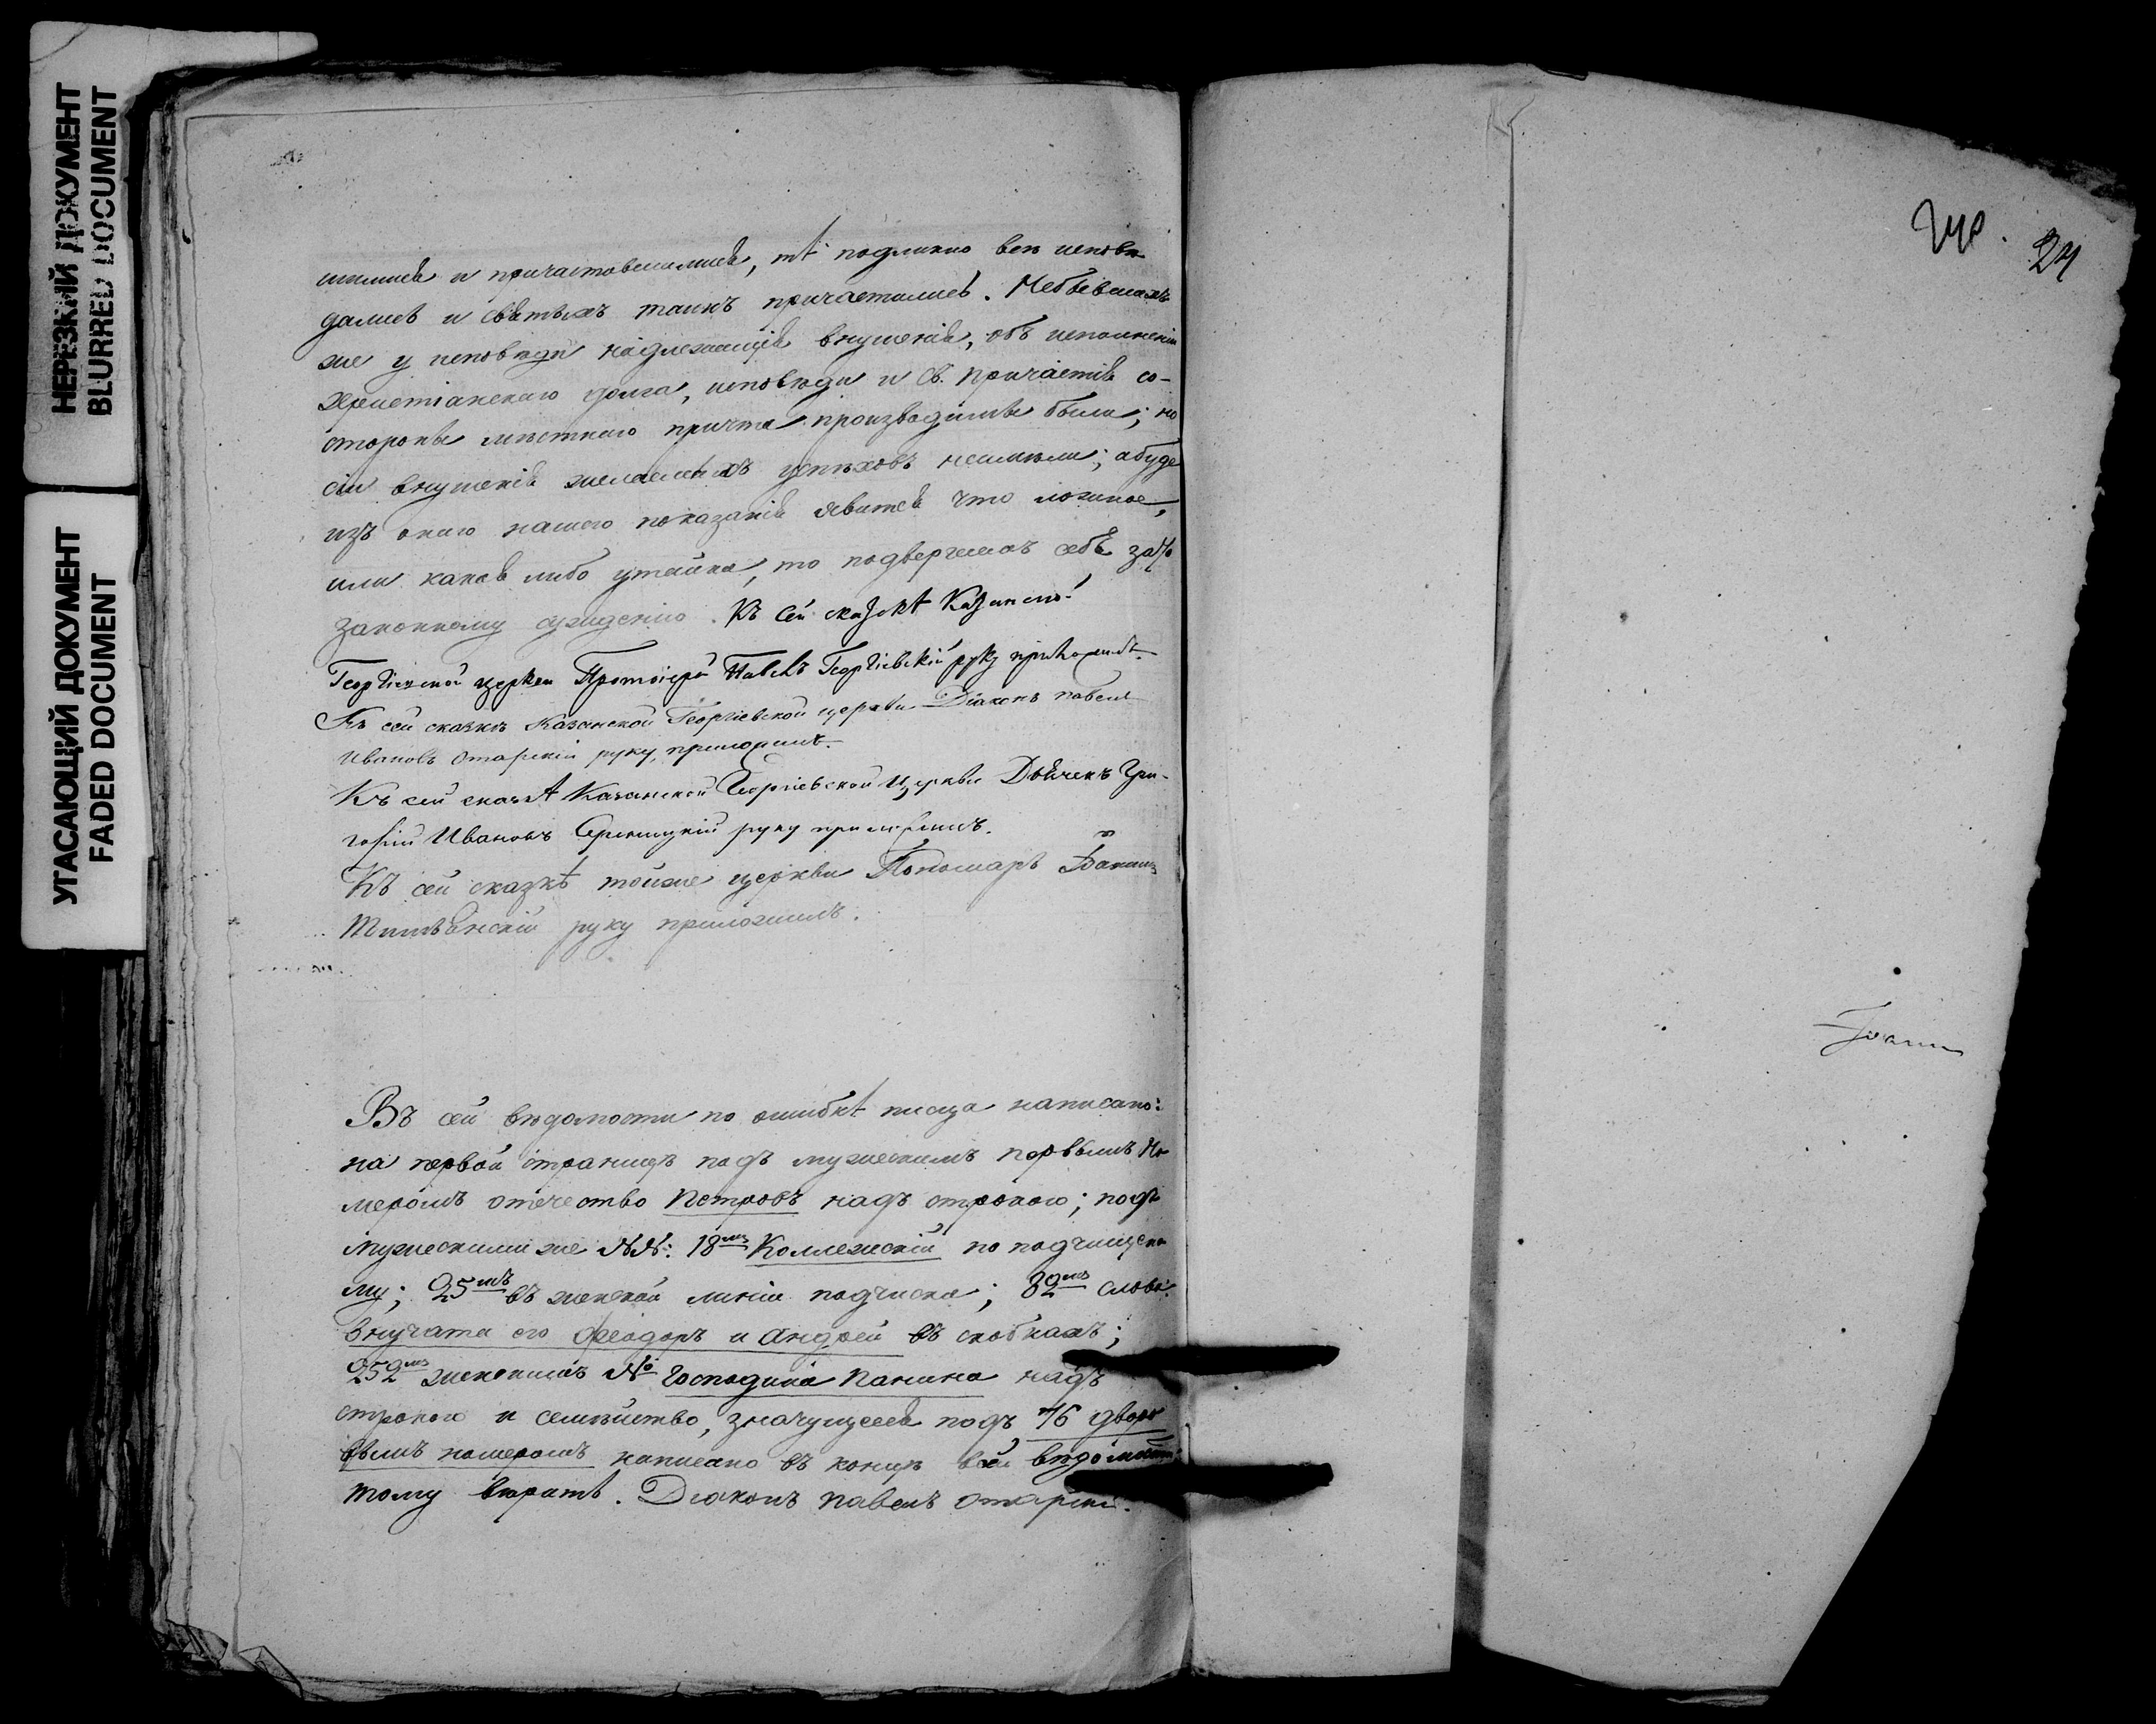 НЕРЕЗКИЙ ДОКУМЕНТ
BLURRED DOCUMENT
УГАСАЮЩИЙ ДОКУМЕНТ
FADED DOCUMENT
шимися и причастовшимися, тѣ подлинно всѣ исповѣ
дались и святыхъ таинъ причастились. Небывшимъ
же у исповѣди надлежащія внушенія, объ исполненіи
христіанскаго долга, исповѣди и св. причастія со-
стороны мѣстнаго причта производимы были; но
сіи внушенія желаемыхъ успѣховъ неимѣли; а буде
изъ онаго нашего показанія явится что ложное,
или какая либо утайка, то подвергаемъ себѣ за то
законному сужденію. Къ сей сказкѣ Казанской
Георгіевской церкви Протоіерей Павелъ Георгіевскій руку приложилъ.
Къ сей сказкѣ Казанской Георгіевской церкви Діаконъ павелъ
Ивановъ Отарскій руку приложилъ.
Къ сей сказкѣ Казанской Георгіевской Церкви Дьячекъ Гри-
горій Ивановъ руку приложилъ.
Къ сей сказкѣ тойже церкви Пономарь
руку приложилъ.
Въ сей вѣдомости по ошибкѣ писца написано:
на первой страницѣ подъ мужескимъ первымъ Но
меромъ отечество Петровъ надъ строкою; подъ
мужескими же №№: 18мъ Коллежскій по подчищено
му; 25мъ въ женской линіи подчистка; 82мъ слова:
внучата его Феодоръ и Андрей въ скобкахъ;
252мъ женскимъ № господина Панина надъ
строкою и семейство, значущееся подъ 76 дворо
вымъ номеромъ написано въ концѣ всей вѣдомости
тому вѣрить. Діаконъ Павелъ Отарскій.
24